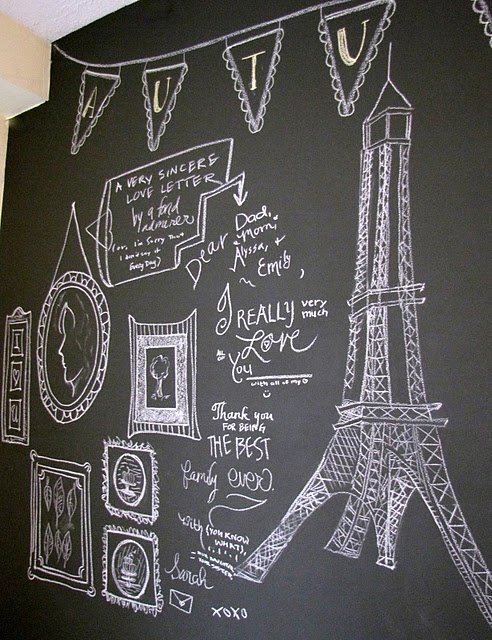 AUTU
A VERY SINCERE
LOVE LETTER
by a fond
admirer
(or, I'm Sorry that
I don't say it
Every Day)
Dear Dad,
Mom,
Alyssa, +
Emily,
I REALLY very
much
Love
ALL OF
You
with all my ♡
Thank you
FOR BEING
THE BEST
family ever.
with (YOU KNOW
WHAT),
YOUR DAUGHTER,
YOUR SISTER
Sarah
XOXO
I
♡
U